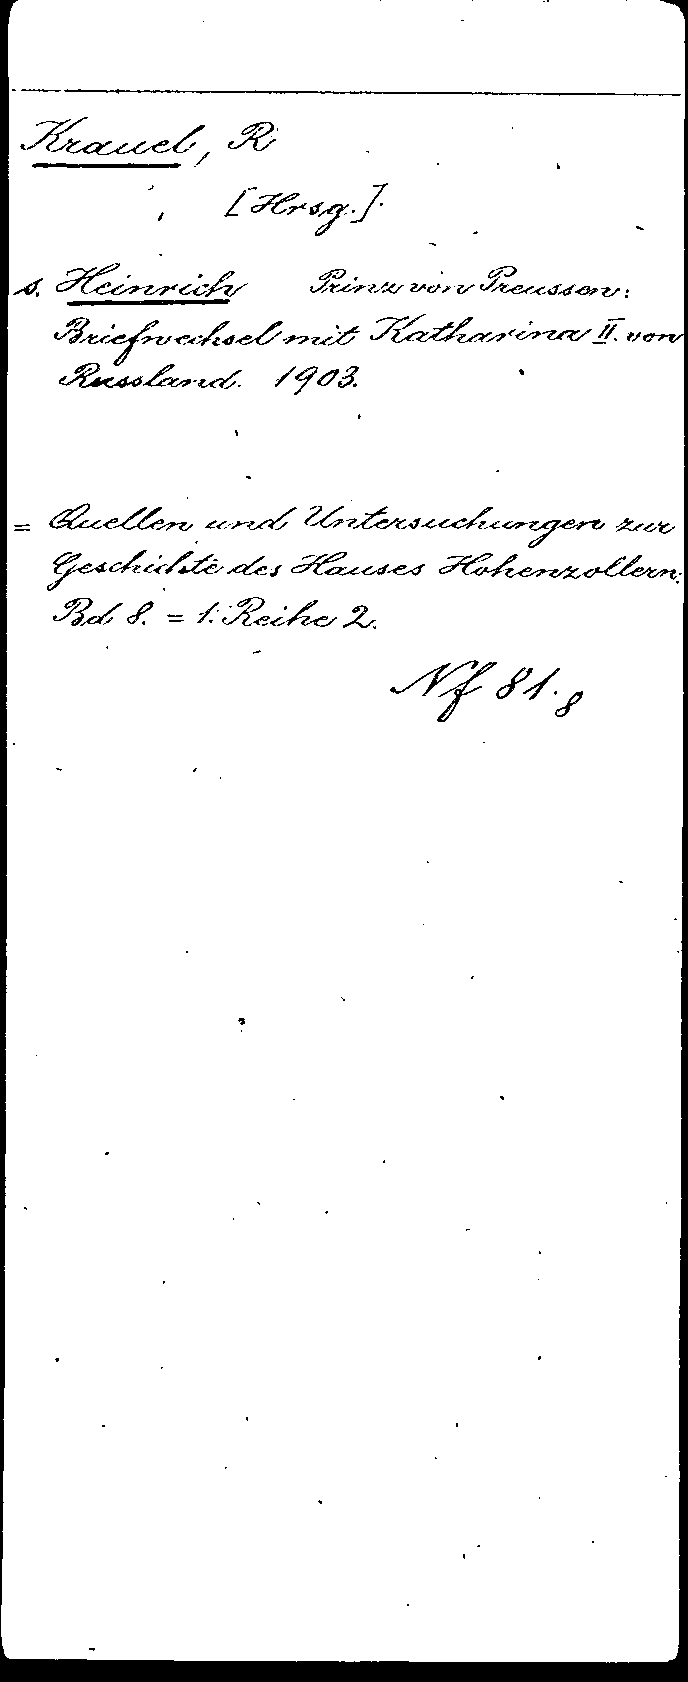 Krauel, R
[Hrsg.].
s. Heinrich Prinz von Preussen:
Briefwechsel mit Katharina II. von
Russland. 1903.
= Quellen und Untersuchungen zur
Geschichte des Hauses Hohenzollern.
Bd 8. = 1. Reihe 2.
Nf 81.8